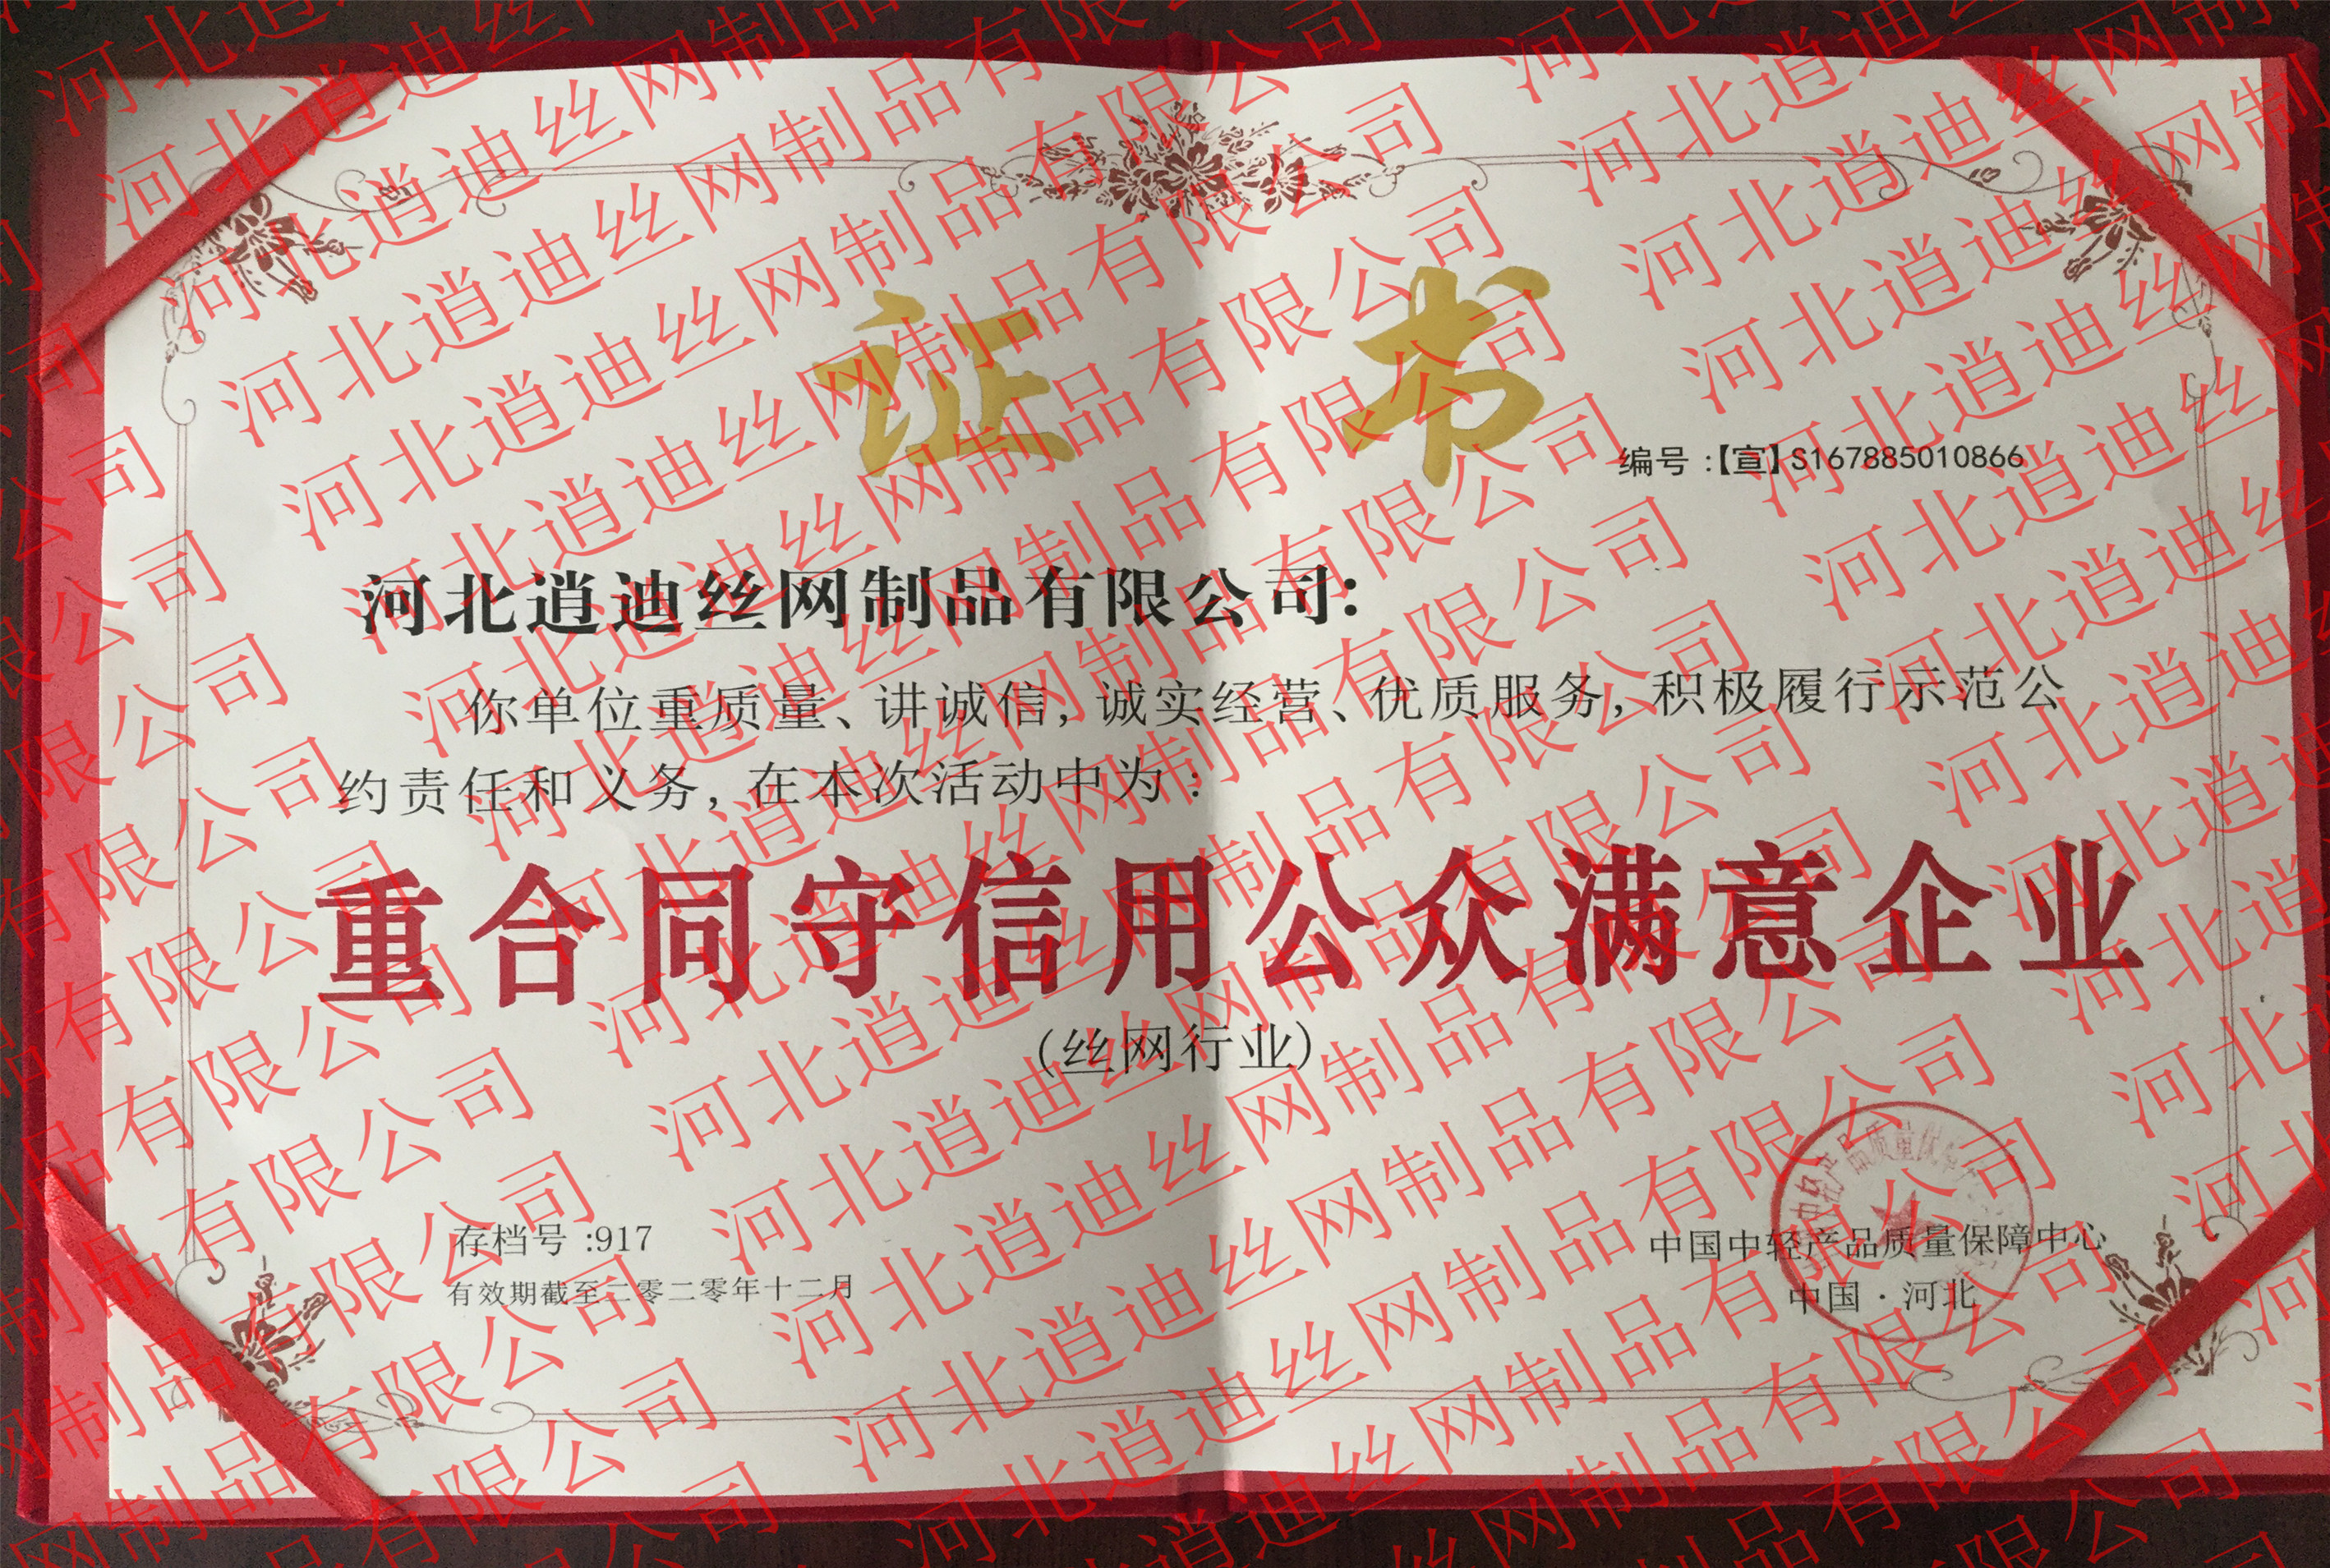 证 书
编号:【宣】S167885010866
河北逍迪丝网制品有限公司:
你单位重质量、讲诚信,诚实经营、优质服务,积极履行示范公
约责任和义务,在本次活动中为:
重合同守信用公众满意企业
(丝网行业)
存档号:917
有效期截至二零二零年十二月
中国中轻产品质量保障中心
中国·河北
河北逍迪丝网制品有限公司